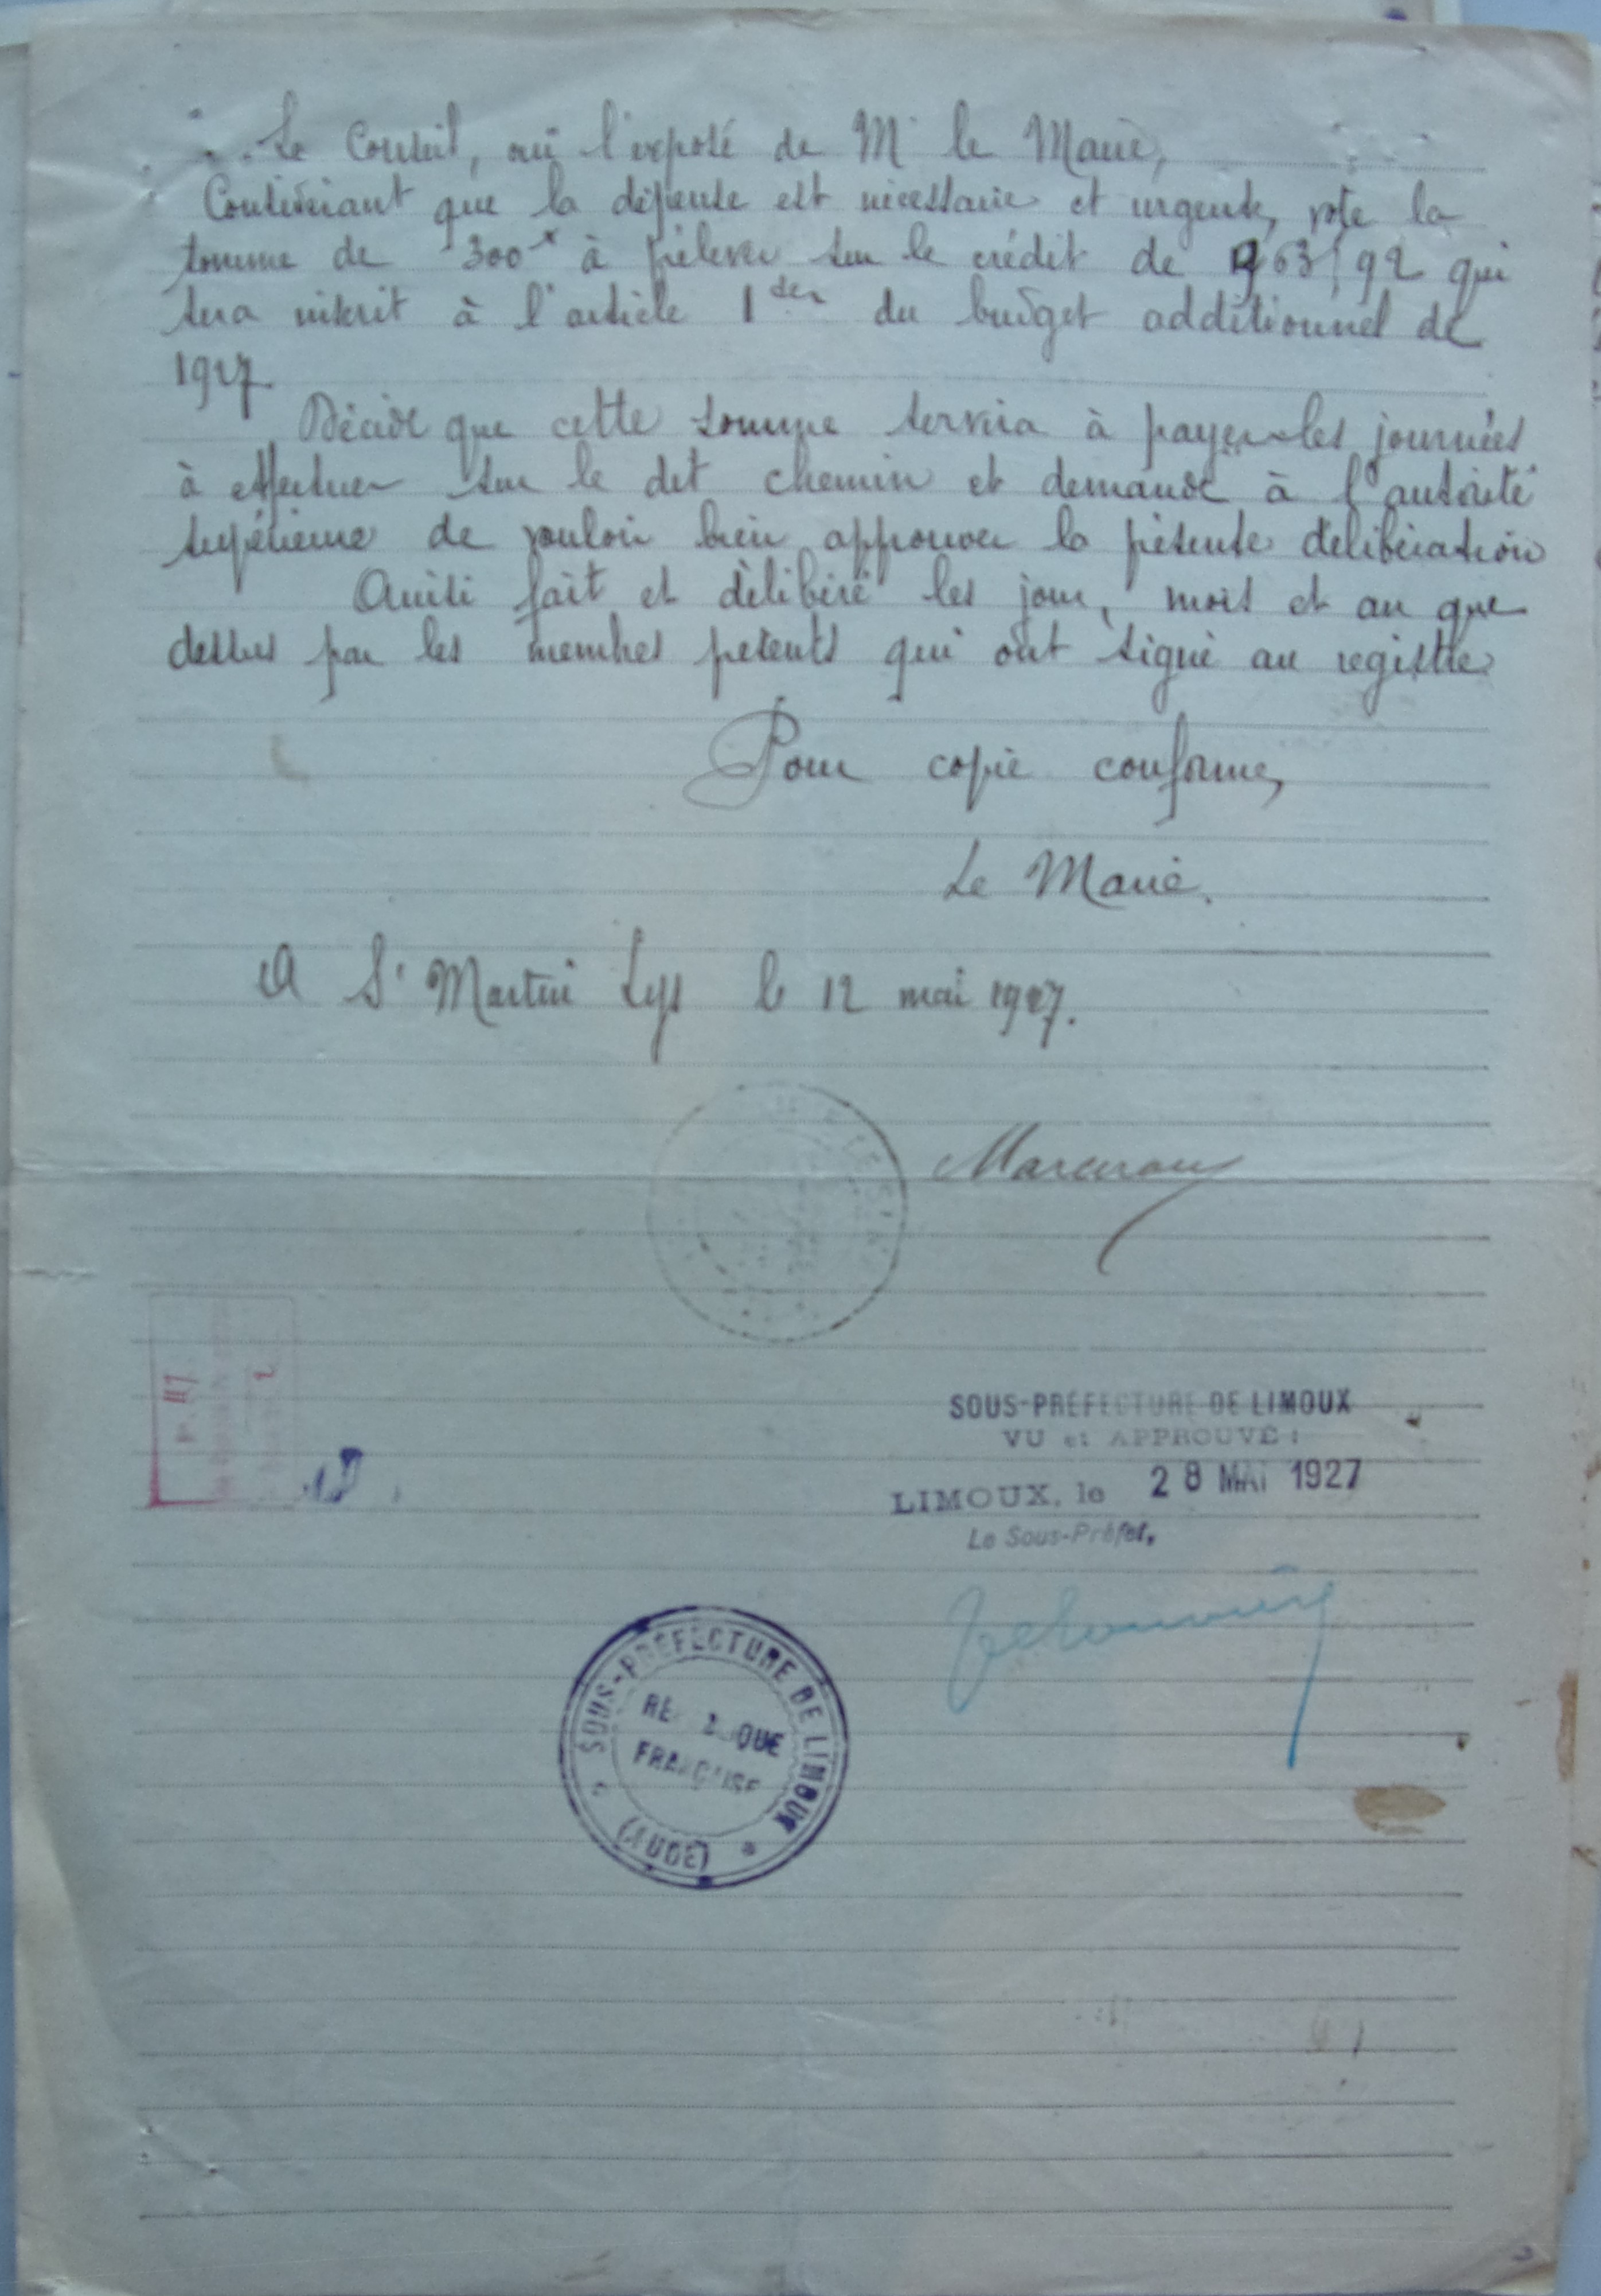 Le Conseil, ouï l'exposé de M. le Maire,
Considérant que la dépense est nécessaire et urgente, vote la
somme de 300 f à prélever sur le crédit de 963 f 92 qui
sera inscrit à l'article 1er du budget additionnel de
1927
Décide que cette somme servira à payer les journées
à effectuer sur le dit chemin et demande à l'autorité
supérieure de vouloir bien approuver la présente délibération
Ainsi fait et délibéré les jour, mois et an que
dessus par les membres présents qui ont signé au registre
Pour copie conforme,
Le Maire.
A St Martin Lys le 12 mai 1927.
SOUS-PRÉFECTURE DE LIMOUX
VU et APPROUVÉ :
LIMOUX, le 28 MAI 1927
Le Sous-Préfet,
SOUS-PRÉFECTURE DE LIMOUX
(AUDE)
FRANÇAISE